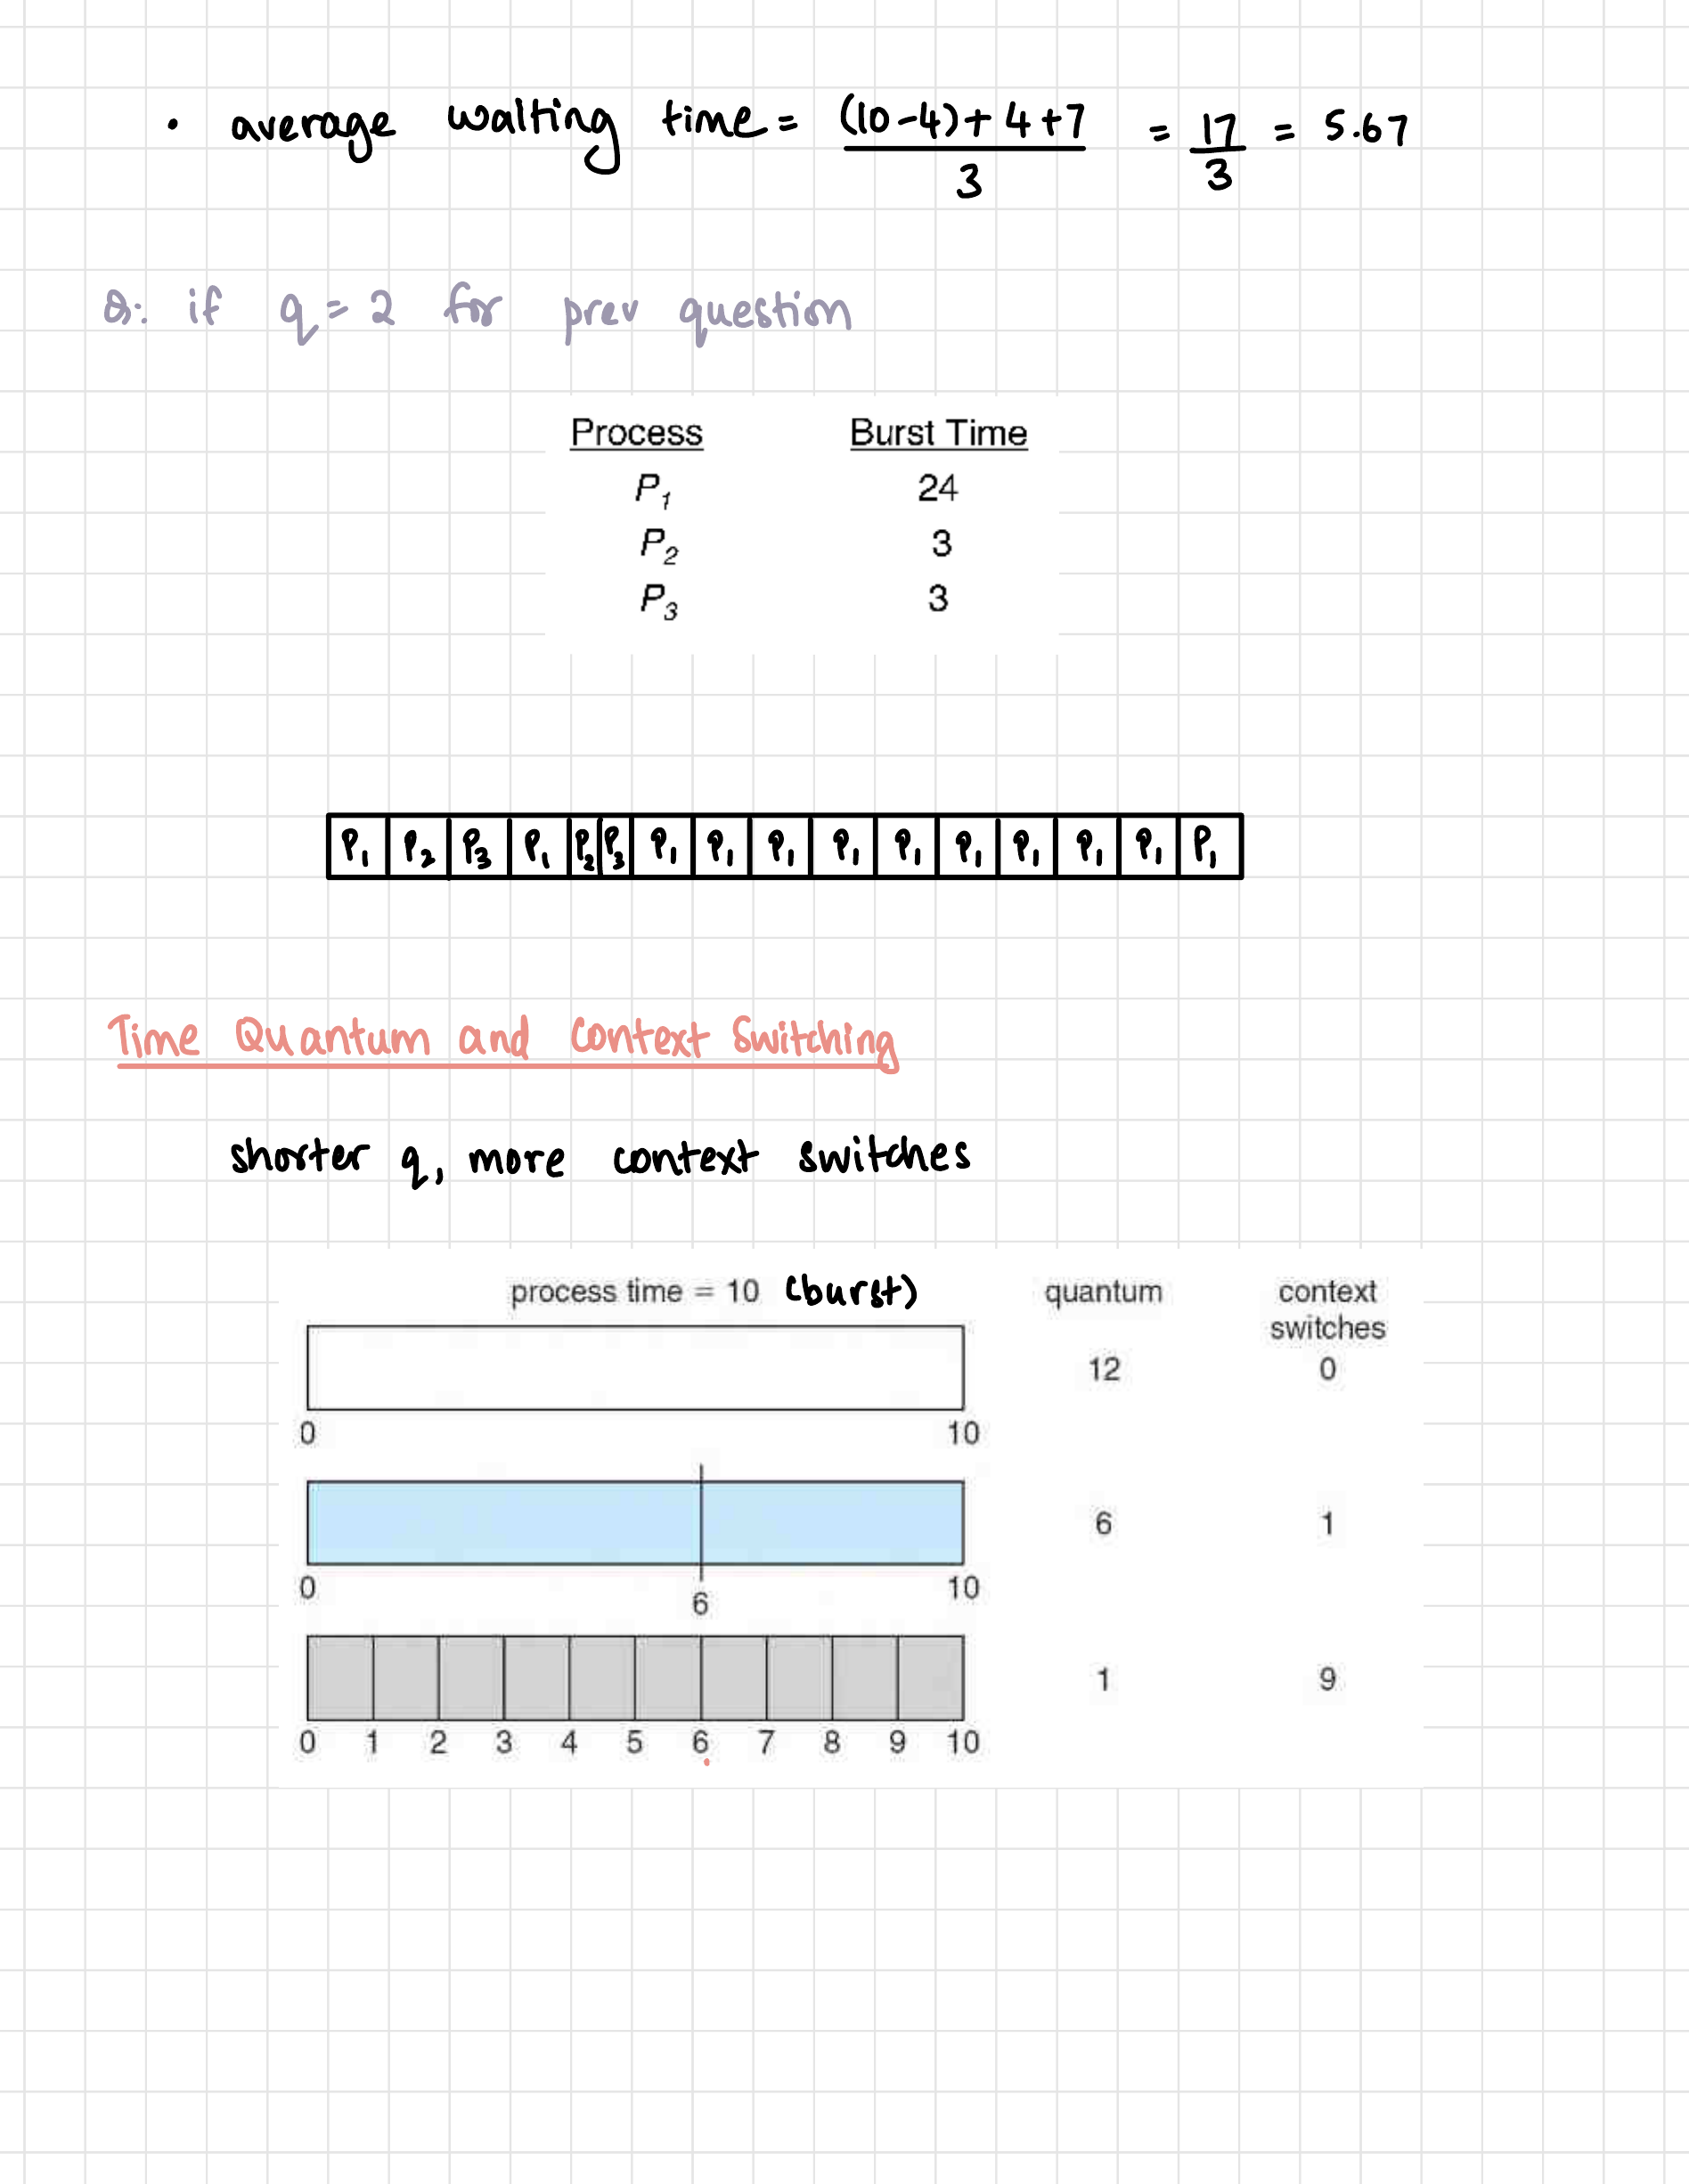 • average waiting time = (10-4)+4+7 / 3 = 17/3 = 5.67
Q: if q = 2 for prev question
Process Burst Time
P1 24
P2 3
P3 3
P1 P2 P3 P1 P2 P3 P1 P1 P1 P1 P1 P1 P1 P1 P1 P1
Time Quantum and Context Switching
shorter q, more context switches
process time = 10 (burst) quantum context
switches
12 0
0 10
6 1
0 6 10
1 9
0 1 2 3 4 5 6 7 8 9 10